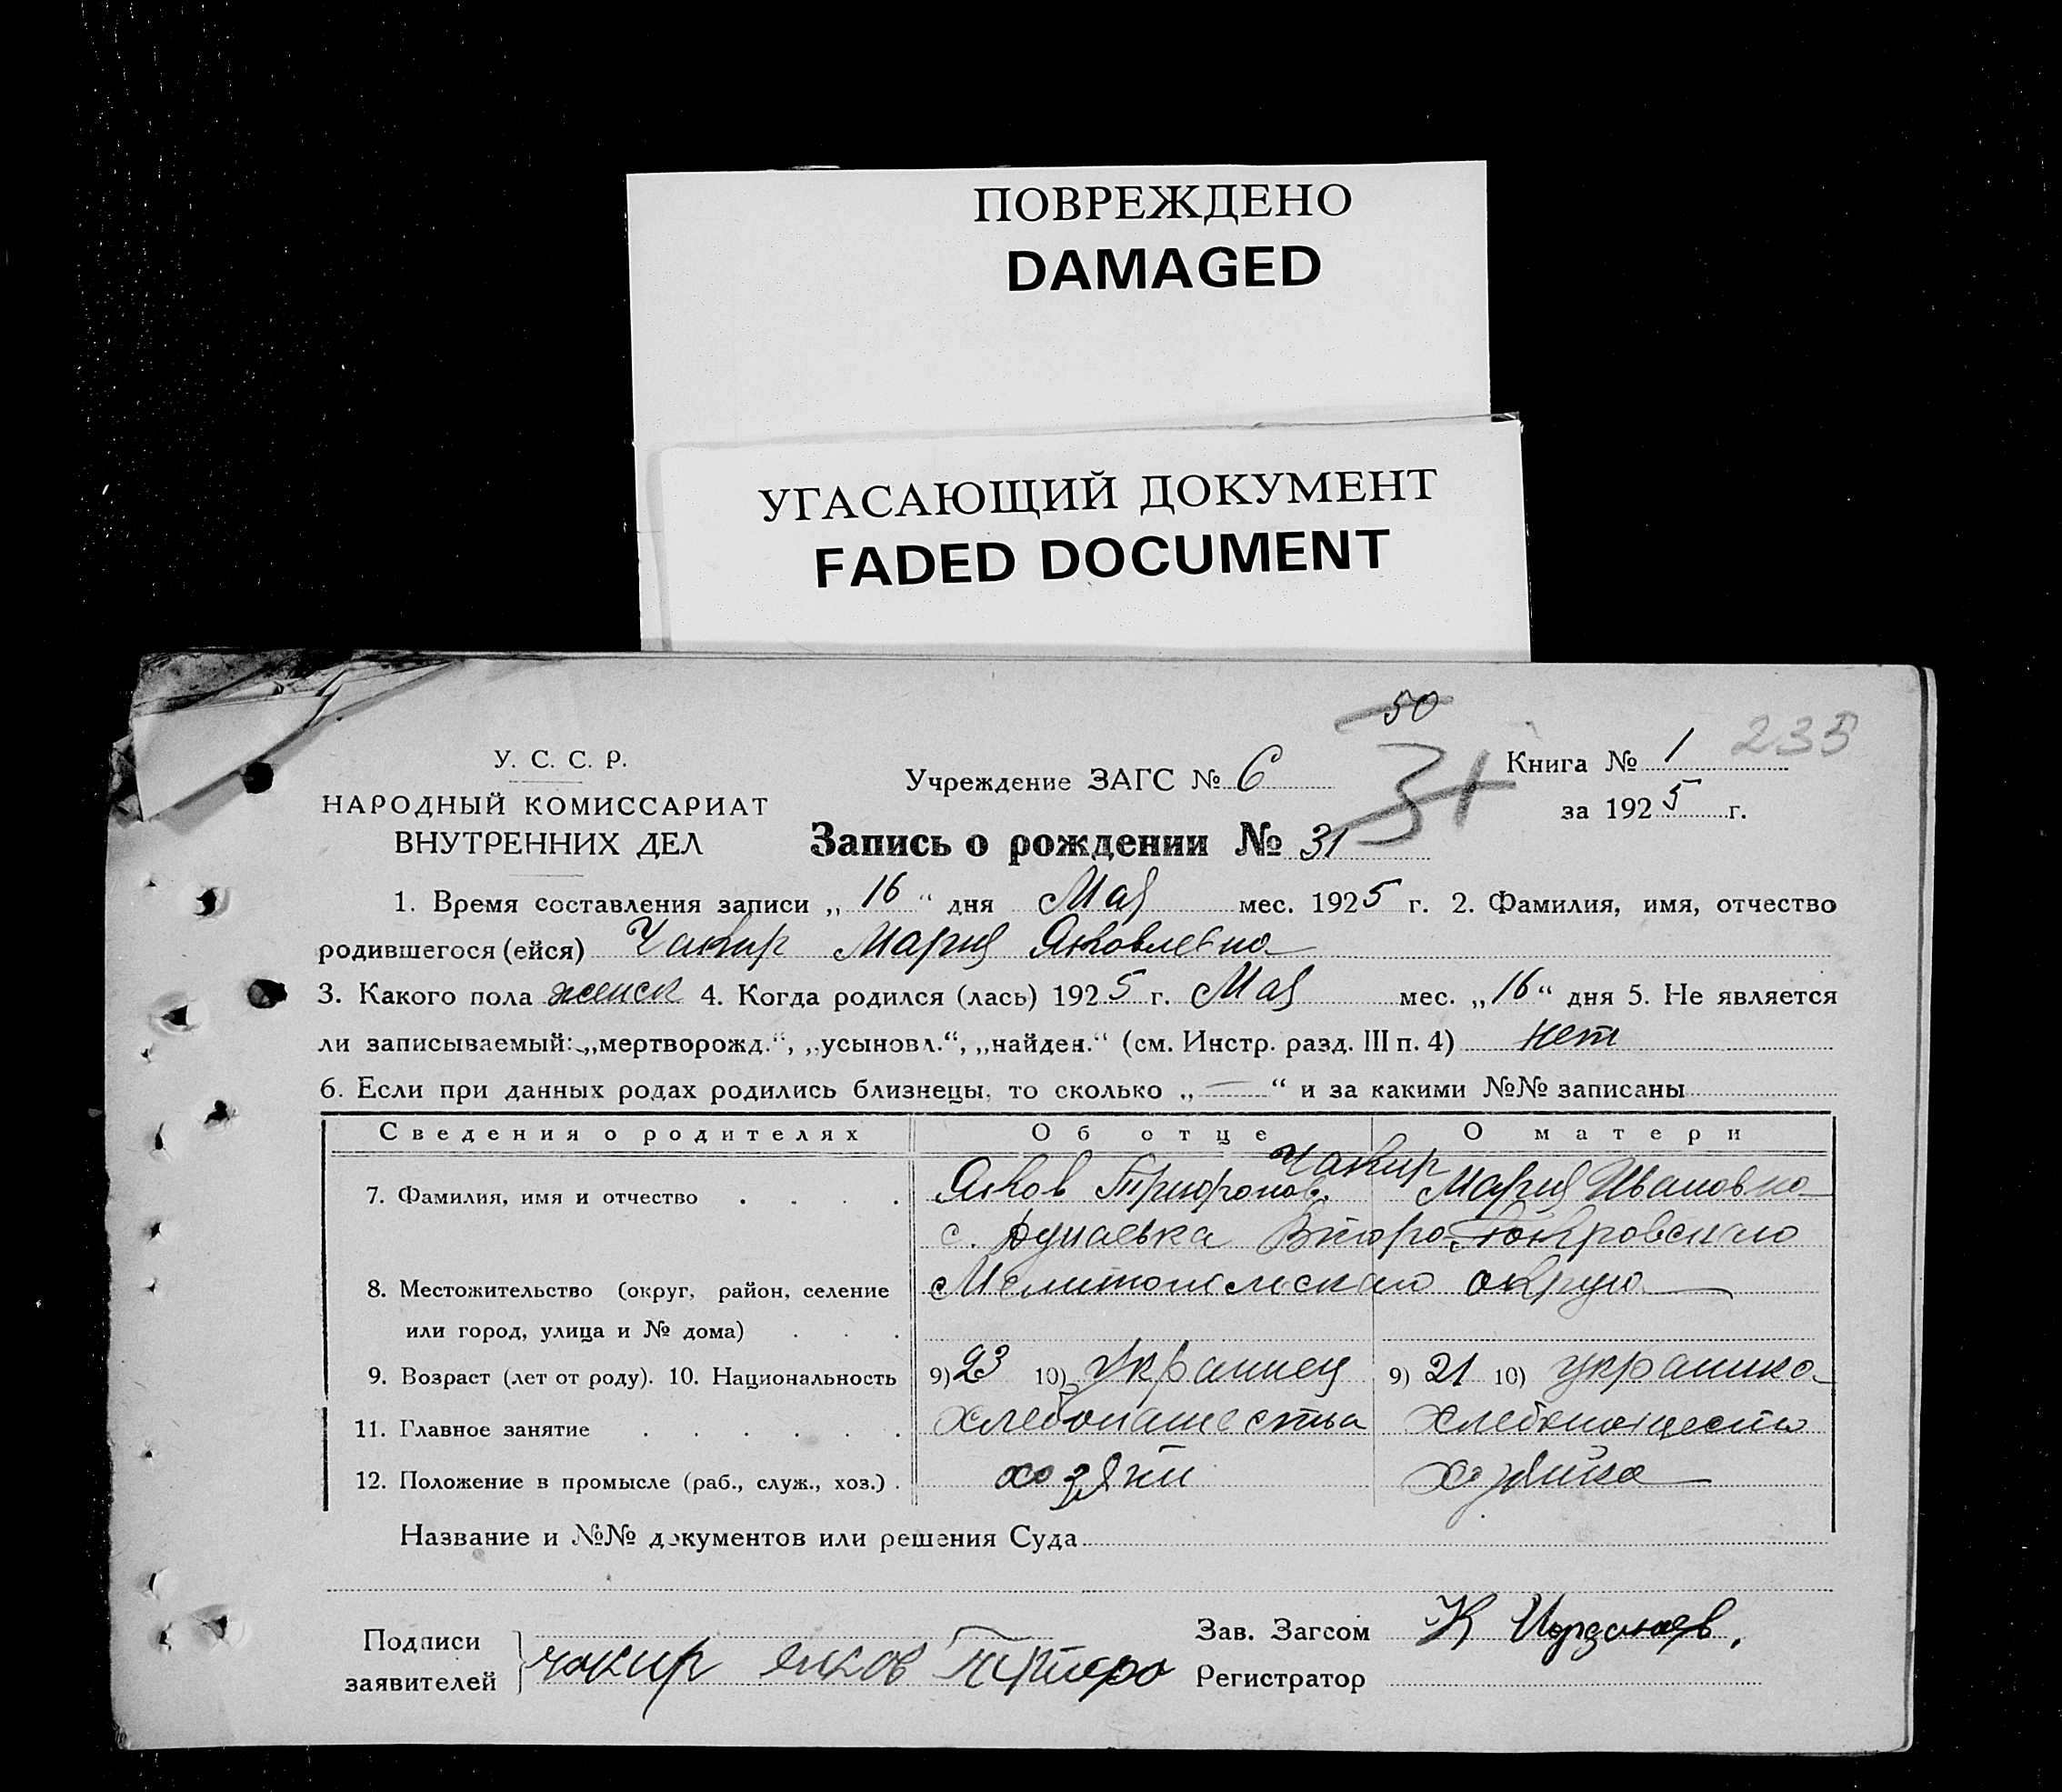 ПОВРЕЖДЕНО
DAMAGED
УГАСАЮЩИЙ ДОКУМЕНТ
FADED DOCUMENT
50
235
31
У. С. С. Р.
НАРОДНЫЙ КОМИССАРИАТ
ВНУТРЕННИХ ДЕЛ
Учреждение ЗАГС № 6
Книга № 1
за 1925 г.
Запись о рождении № 31
1. Время составления записи „16“ дня Мая мес. 1925 г. 2. Фамилия, имя, отчество
родившегося (ейся) Чакир Мария Яковлевна
3. Какого пола женск 4. Когда родился (лась) 1925 г. Мая мес. „16“ дня 5. Не является
ли записываемый: „мертворожд.“, „усыновл.“, „найден.“ (см. Инстр. разд. III п. 4) нет
6. Если при данных родах родились близнецы, то сколько „—“ и за какими №№ записаны
Сведения о родителях Об отце О матери
Чакир
7. Фамилия, имя и отчество Яков Трифонов. Мария Ивановна
с. Дунаевка Второ-Покровского
8. Местожительство (округ, район, селение Мелитопольского округа
или город, улица и № дома)
9. Возраст (лет от роду). 10. Национальность 9) 23 10) Украинец 9) 21 10) украинка
11. Главное занятие хлебопашества хлебопашество
12. Положение в промысле (раб., служ., хоз.) хозяин хозяйка
Название и №№ документов или решения Суда
Подписи
заявителей чакир яков
Зав. Загсом К
Регистратор